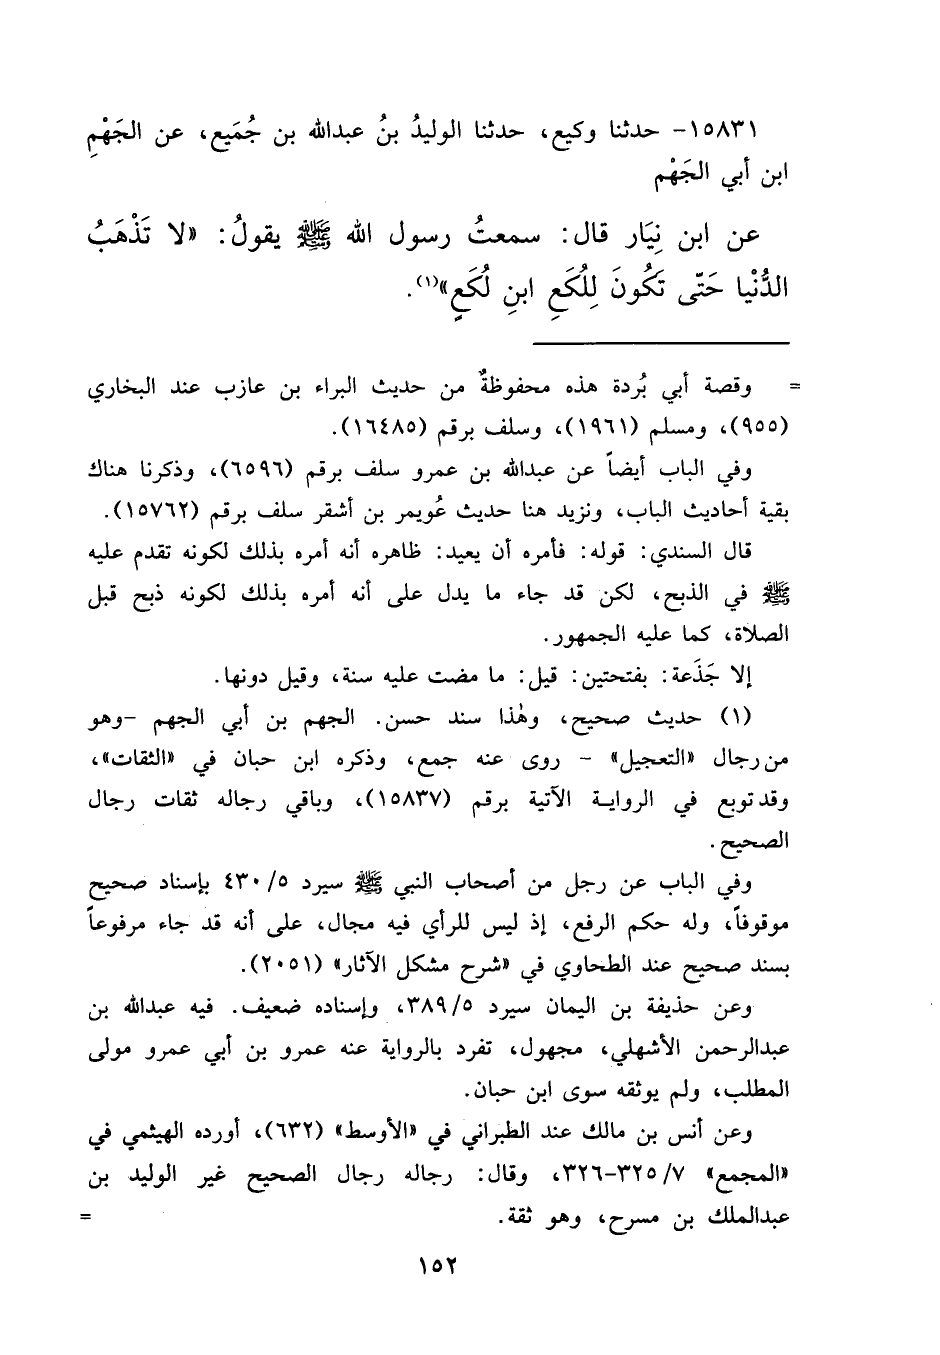 ١٥٨٣١- حدثنا وكيع، حدثنا الوليدُ بنُ عبدالله بن جُمَيع، عن الجَهْمِ
ابن أبي الجَهْم
عن ابن نِيَار قال: سمعتُ رسول الله ﷺ يقولُ: «لا تَذْهَبُ
الدُّنْيا حَتّى تَكُونَ لِلُكَعِ ابنِ لُكَعٍ»(١).
= وقصة أبي بُردة هذه محفوظةٌ من حديث البراء بن عازب عند البخاري
(٩٥٥)، ومسلم (١٩٦١)، وسلف برقم (١٦٤٨٥).
وفي الباب أيضاً عن عبدالله بن عمرو سلف برقم (٦٥٩٦)، وذكرنا هناك
بقية أحاديث الباب، ونزيد هنا حديث عُويمر بن أشقر سلف برقم (١٥٧٦٢).
قال السندي: قوله: فأمره أن يعيد: ظاهره أنه أمره بذلك لكونه تقدم عليه
ﷺ في الذبح، لكن قد جاء ما يدل على أنه أمره بذلك لكونه ذبح قبل
الصلاة، كما عليه الجمهور.
إلا جَذَعة: بفتحتين: قيل: ما مضت عليه سنة، وقيل دونها.
(١) حديث صحيح، وهٰذا سند حسن. الجهم بن أبي الجهم -وهو
من رجال «التعجيل» - روى عنه جمع، وذكره ابن حبان في «الثقات»،
وقد توبع في الرواية الآتية برقم (١٥٨٣٧)، وباقي رجاله ثقات رجال
الصحيح.
وفي الباب عن رجل من أصحاب النبي ﷺ سيرد ٤٣٠/٥ بإسناد صحيح
موقوفاً، وله حكم الرفع، إذ ليس للرأي فيه مجال، على أنه قد جاء مرفوعاً
بسند صحيح عند الطحاوي في «شرح مشكل الآثار» (٢٠٥١).
وعن حذيفة بن اليمان سيرد ٣٨٩/٥، وإسناده ضعيف. فيه عبدالله بن
عبدالرحمن الأشهلي، مجهول، تفرد بالرواية عنه عمرو بن أبي عمرو مولى
المطلب، ولم يوثقه سوى ابن حبان.
وعن أنس بن مالك عند الطبراني في «الأوسط» (٦٣٢)، أورده الهيثمي في
«المجمع» ٣٢٥/٧-٣٢٦، وقال: رجاله رجال الصحيح غير الوليد بن
عبدالملك بن مسرح، وهو ثقة. =
١٥٢